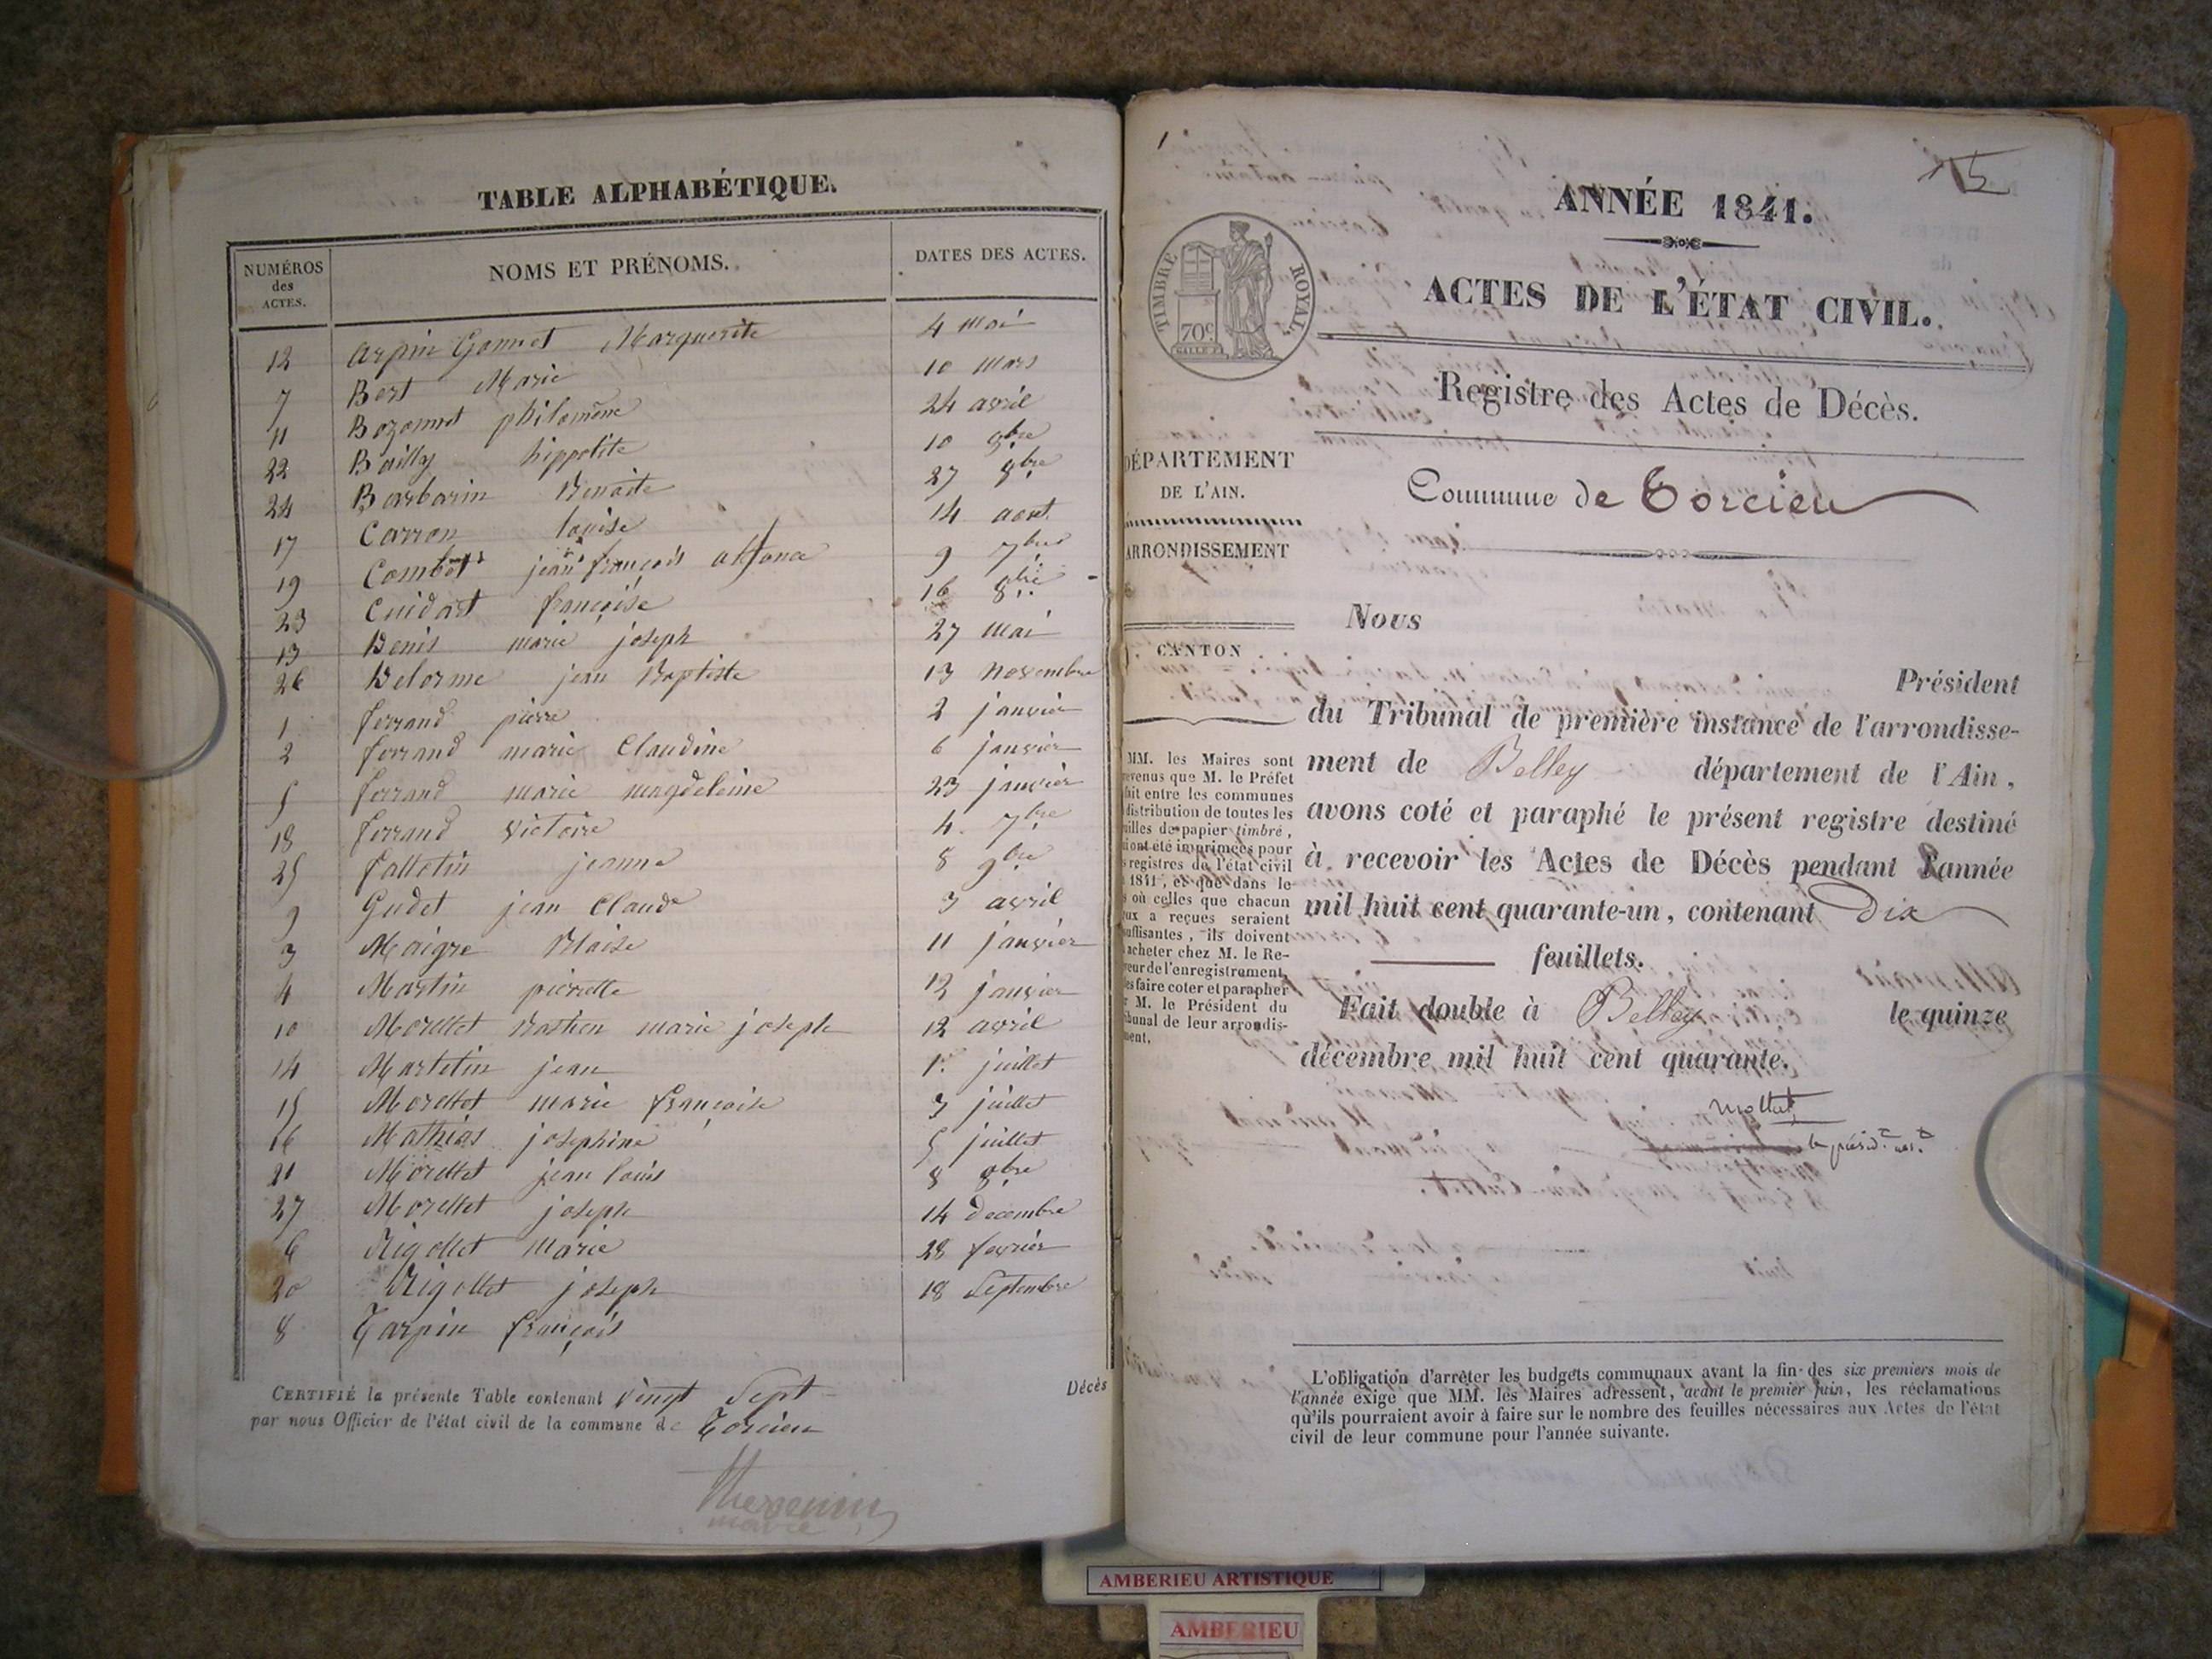 TABLE ALPHABÉTIQUE.
NUMÉROS des ACTES. NOMS ET PRÉNOMS. DATES DES ACTES.
12 Arpin Gonnet Marguerite 4 mai
7 Bert Marie 10 mars
11 Bozonnet philomène 24 avril
22 Bailly hippolite 10 8bre
24 Barbarin Benoite 27 8bre
17 Carron louise 14 aout
19 Combet jean françois 9 7bre
23 Cuidart françoise 16 8bre
13 Denis marie joseph 27 mai
26 Delorme jean Baptiste 13 novembre
1 ferrand pierre 2 janvier
2 ferrand marie Claudine 6 janvier
5 ferrand marie magdeleine 23 janvier
18 ferrand victoire 4 7bre
25 falletin jeanne 8 9bre
9 Gudet jean Claude 3 avril
3 Maigre Blaise 11 janvier
4 Martin pierrette 12 janvier
10 Morellet Bastien marie joseph 12 avril
14 Martetin jean 1er juillet
15 Morellet marie françoise 3 juillet
16 Mathias josephine 5 juillet
21 Morellet jean louis 8 8bre
27 Morellet joseph 14 decembre
6 Rigollet Marie 28 fevrier
20 Rigollet joseph 18 Septembre
8 Tarpin françois
CERTIFIÉ la présente Table contenant vingt Sept Décès
par nous Officier de l'état civil de la commune de Torcieu
maire
1
15
ANNÉE 1841.
TIMBRE ROYAL.
70c.
ACTES DE L'ÉTAT CIVIL.
Registre des Actes de Décès.
DÉPARTEMENT
DE L'AIN.
ARRONDISSEMENT
CANTON
Commune de Torcieu
Nous
Président
du Tribunal de première instance de l'arrondisse-
ment de Belley département de l'Ain,
avons coté et paraphé le présent registre destiné
à recevoir les Actes de Décès pendant l'année
mil huit cent quarante-un, contenant Dix
feuillets.
Fait double à Belley le quinze
décembre mil huit cent quarante.
Mollet
le présid.t
MM. les Maires sont
revenus que M. le Préfet
fait entre les communes
distribution de toutes les
uilles de papier timbré,
i ont été imprimées pour
s registres de l'état civil
1841, et que dans le
s où celles que chacun
ux a reçues seraient
suffisantes, ils doivent
acheter chez M. le Re-
veur de l'enregistrement,
les faire coter et parapher
r M. le Président du
ibunal de leur arrondis-
ment.
L'obligation d'arrêter les budgets communaux avant la fin des six premiers mois de
l'année exige que MM. les Maires adressent, avant le premier juin, les réclamations
qu'ils pourraient avoir à faire sur le nombre des feuilles nécessaires aux Actes de l'état
civil de leur commune pour l'année suivante.
AMBERIEU ARTISTIQUE
AMBERIEU